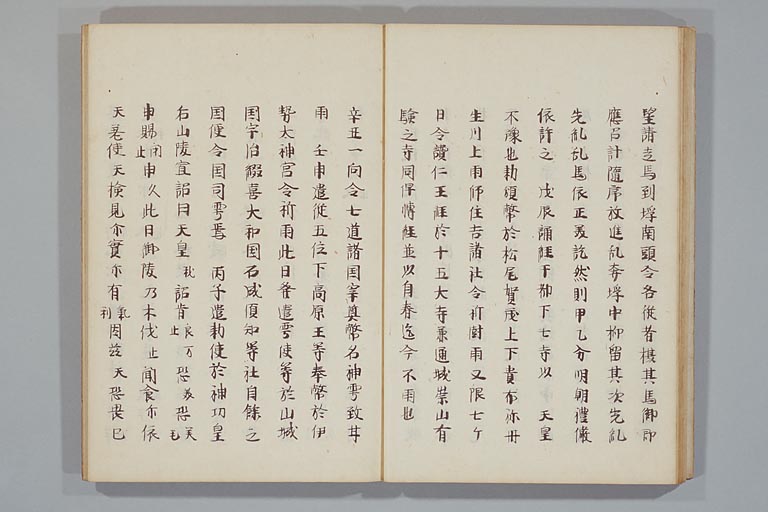 望諸走馬到埒南頭令各従者樴其馬御即
應召計随序放進乱奔埒中抑留其次先乱
先乱乱馬依正員訖然則甲乙分明朝禮儼
依許之 戊辰誦経下都下七寺以 天皇
不豫也勅頒幣於松尾賀茂上下貴布祢丹
生川上雨師住吉諸社令祈時雨又限七ケ
日令讀仁王経於十五大寺兼通城崇山有
驗之寺同俾轉経並以自春迄今不雨也
辛丑一向令七道諸国宰奠幣名神雩致甘
雨 壬申遣従五位下高原王等奉幣於伊
勢大神宮令祈雨此日発遣雩使等於山城
国宇治綴喜大和国石成須知等社自餘之
国便令国司雩焉 丙子遣勅使於神功皇
右山陵宣詔曰天皇我詔旨止良万恐美恐美毛
申賜閇止申久此日御陵乃木伐止聞食尓依
天差使天檢見尓實尓有利氣因茲天恐畏己